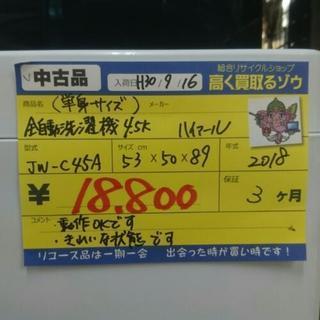 中古品 入荷日 H30/9/16
総合リサイクルショップ
高く買取るゾウ
商品名 (単身サイズ) メーカー
全自動洗濯機 4.5K ハイアール
型式 サイズ cm 年式
JW-C45A 53×50×89 2018
¥ 18.800 保証 3ヶ月
コメント
・動作OKです
・きれいな状態です
リユース品は一期一会 出会った時が買い時です!